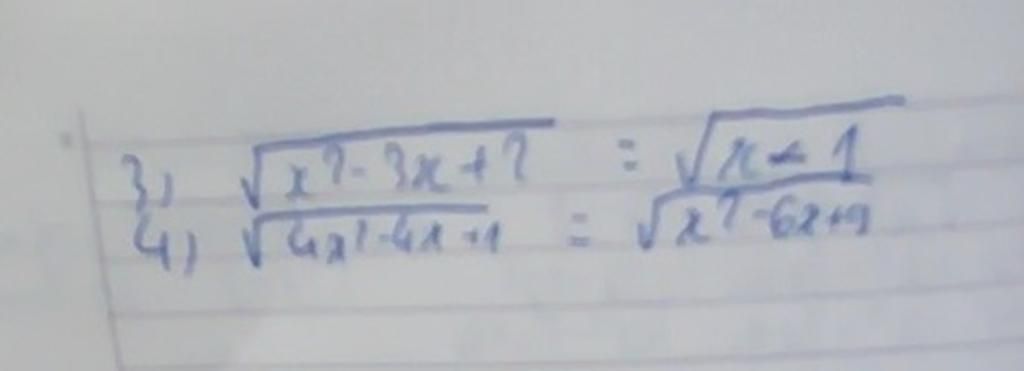 3) √(x² - 3x + 2) = √(x - 1)
4) √(4x² - 4x + 1) = √(x² - 6x + 9)